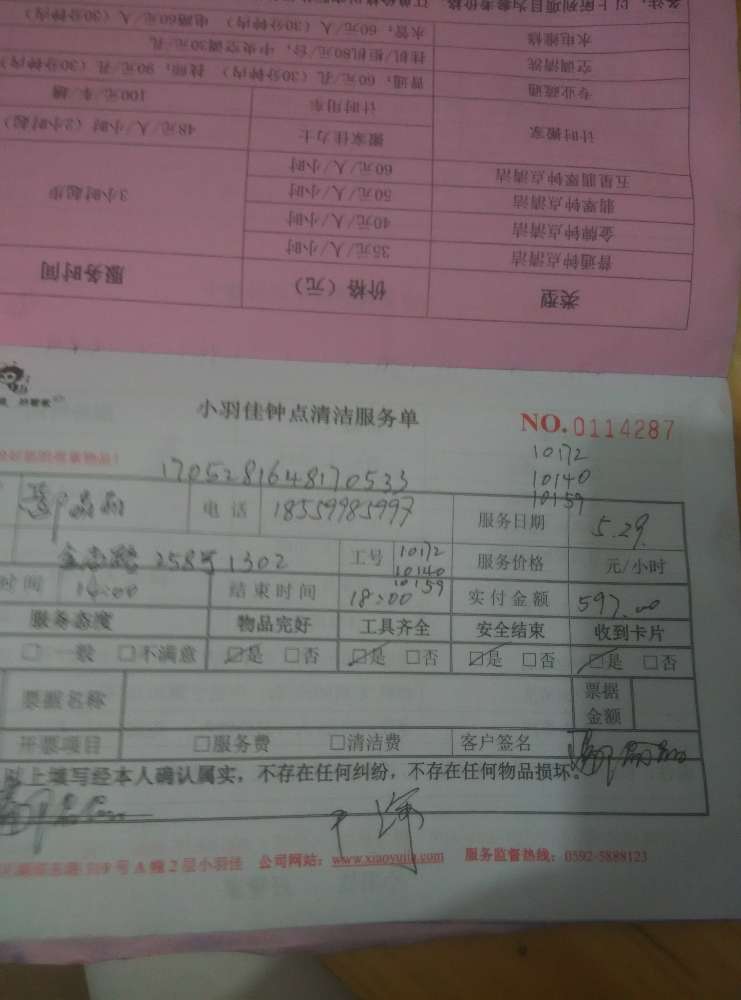 备注：以上所列项目为参考价格
水电维修 水管：60元/人（30分钟内） 电路60元/人（30分钟内）
空调清洗 挂机/柜机80元/台，中央空调30元/孔
专业疏通 普通：60元/孔（30分钟内） 技师：90元/孔（30分钟内）
计时搬家 计时用车 100元/车/趟
搬家佳力士 48元/人/小时（2小时起）
五星翡翠钟点清洁 60元/人/小时
翡翠钟点清洁 50元/人/小时 3小时起步
金牌钟点清洁 40元/人/小时
普通钟点清洁 35元/人/小时
类型 价格（元） 服务时间
小羽佳钟点清洁服务单 NO.0114287
1705281648170533
10172
10140
10159
电话 18559985997 服务日期 5.29
258号1302 工号 10172 10140 10159 服务价格 元/小时
时间 14:00 结束时间 18:00 实付金额 597.00
服务态度 物品完好 工具齐全 安全结束 收到卡片
□一般 □不满意 ☑是 □否 ☑是 □否 ☑是 □否 ☑是 □否
票据名称 票据金额
开票项目 □服务费 □清洁费 客户签名
以上填写经本人确认属实，不存在任何纠纷，不存在任何物品损坏。
号A幢2层小羽佳 公司网站：www.xiaoyujia.com 服务监督热线：0592-5888123